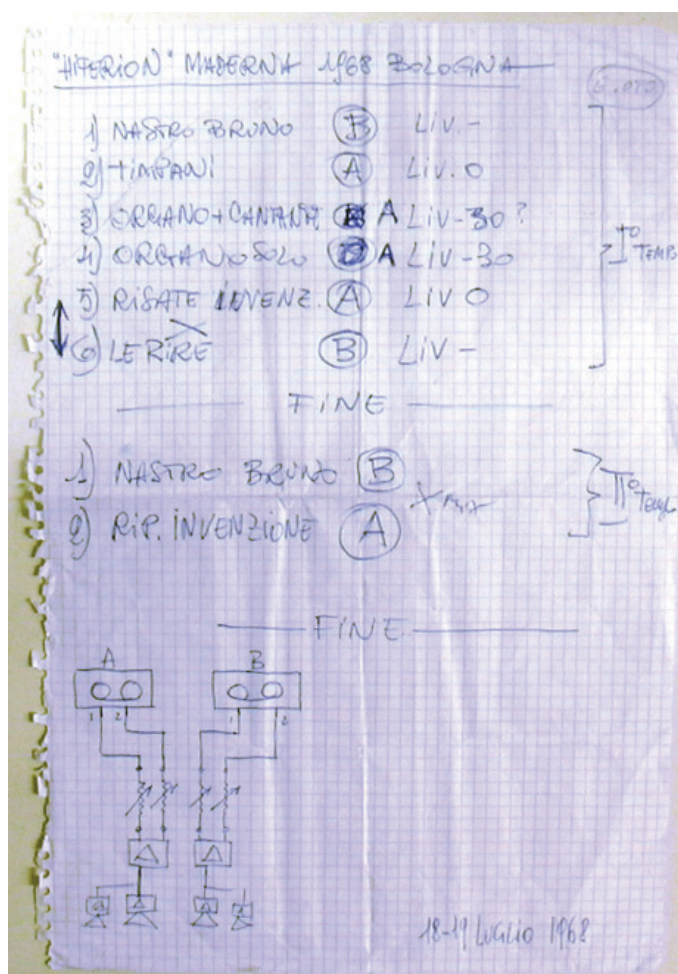 "HIPERION" MADERNA 1968 BOLOGNA
1) NASTRO BRUNO B LIV. -
2) TIMPANI A LIV. 0
3) ORGANO + CANTANTE A LIV -30 ?
4) ORGANO SOLO A LIV -30
5) RISATE INVENZ. A LIV 0
6) LE RIRE B LIV -
I° TEMPO
FINE
1) NASTRO BRUNO B
2) RIP. INVENZIONE A
II° Tempo
FINE
A B
1 2 1 2
18-19 LUGLIO 1968